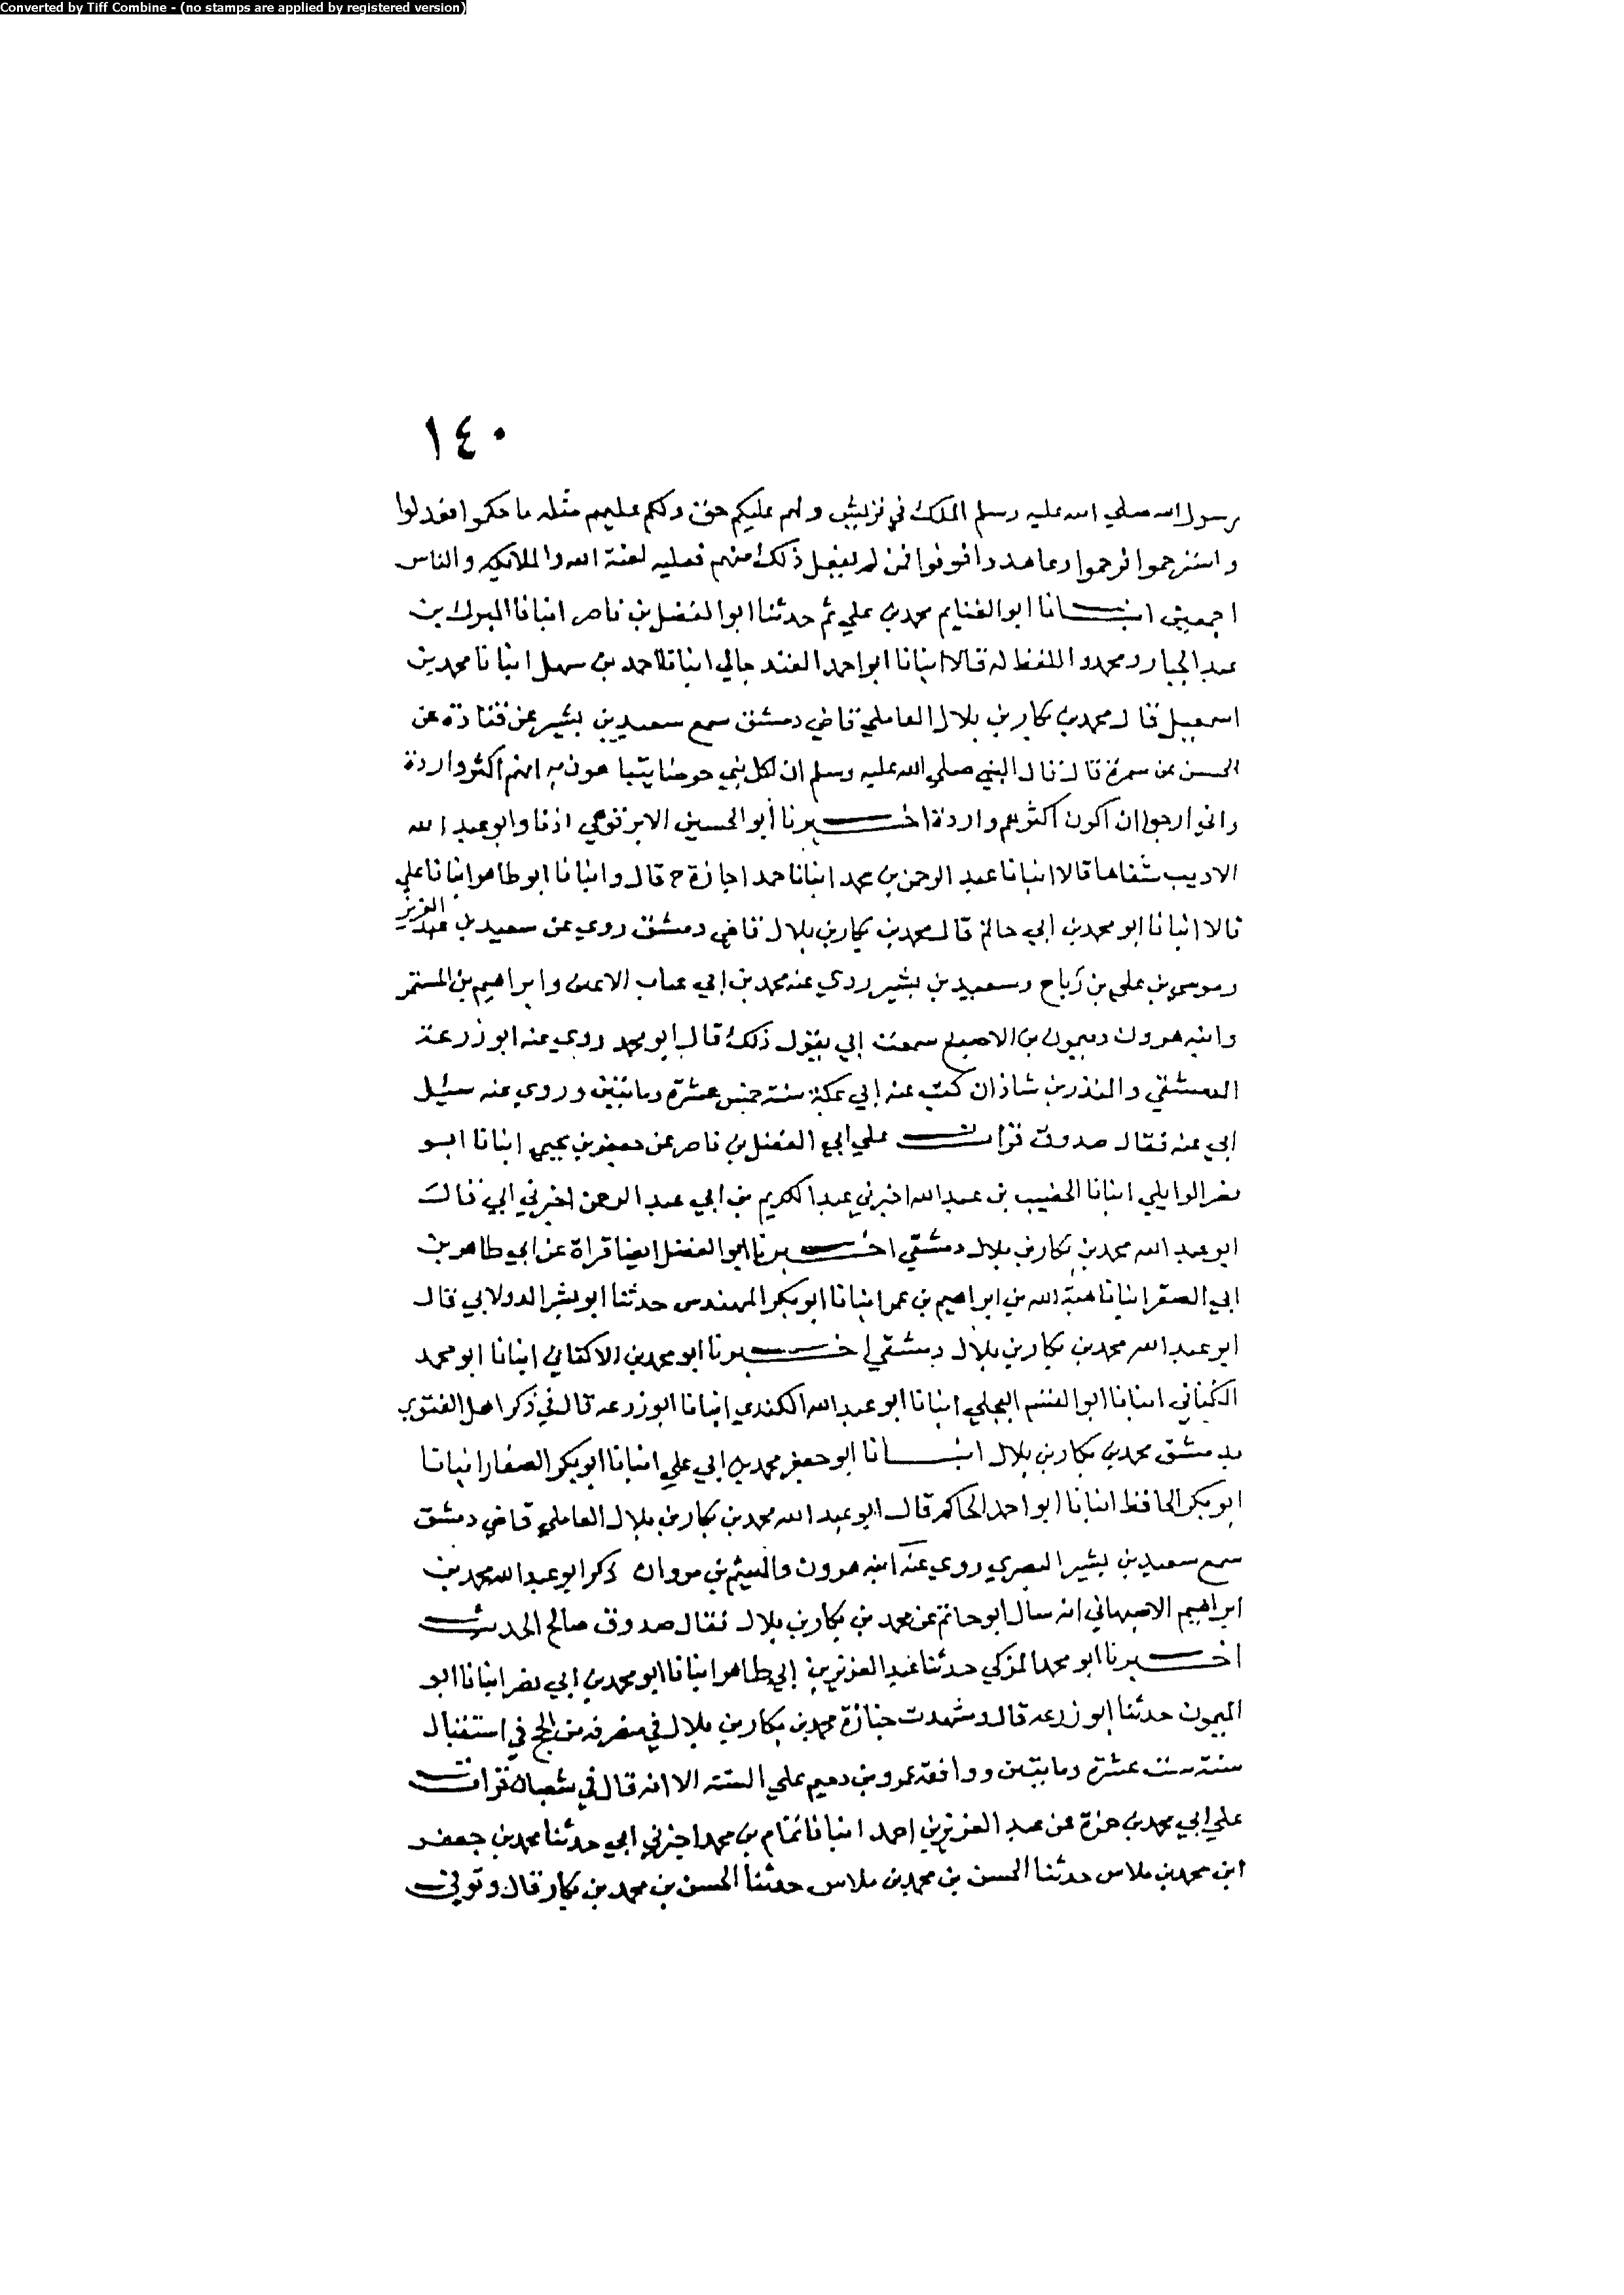 Converted by Tiff Combine - (no stamps are applied by registered version)
١٤٠
رسول الله صلي الله عليه وسلم الملك في قريش ولهم عليكم حق ولكم عليهم مثله ما حكموا فعدلوا
واسترحموا فرحموا وعاهدوا فوفوا فمن لم يفعل ذلك منهم فعليه لعنة الله والملائكه والناس
اجمعين انبانا ابو الغنايم محمد بن علي ثم حدثنا ابو الفضل بن ناصر انبانا المبرك بن
عبد الجبار ومحمد واللفظ له قالا انبانا ابو احمد الغندجاني انبانا احمد بن سهل انبانا محمد بن
اسمعيل قال محمد بن بكار بن بلال العاملي قاضي دمشق سمع سعيد بن بشير عن قتادة عن
الحسن عن سمرة قال قال النبي صلي الله عليه وسلم ان لكل نبي حوضا يتباهون به ايهم اكثر واردة
واني ارجوا ان اكون اكثرهم واردة اخبرنا ابو الحسين الابرقوهي اذنا وابو عبد الله
الاديب شفاها قالا انبانا عبد الرحمن بن محمد انبانا حمد اجازة ح قال وانبانا ابو طاهر انبانا علي
قالا انبانا ابو محمد بن ابي حاتم قال محمد بن بكار بن بلال قاضي دمشق روي عن سعيد بن عبد العزيز
وموسي بن علي بن رباح وسعيد بن بشير روي عنه محمد بن ابي عتاب الاعين وابراهيم بن المستمر
وابنه هرون وميمون بن الاصبع سمعت ابي يقول ذلك قال ابو محمد روي عنه ابو زرعة
الدمشقي والمنذر بن شاذان كتب عنه ابي بمكة سنة خمس عشرة ومائتين وروي عنه سئيل
ابي عنه فقال صدوق قرات علي ابي الفضل بن ناصر عن جعفر بن يحيي انبانا ابو
نصر الوايلي انبانا الخصيب بن عبد الله اخبرني عبد الكريم بن ابي عبد الرحمن اخبرني ابي قال
ابو عبد الله محمد بن بكار بن بلال دمشقي اخبرنا ابو الفضل ايضا قراة عن ابي طاهر بن
ابي الصقر انبانا هبة الله بن ابراهيم بن عمر انبانا ابو بكر المهندس حدثنا ابو بشر الدولابي قال
ابو عبد الله محمد بن بكار بن بلال دمشقي اخبرنا ابو محمد بن الاكفاني انبانا ابو محمد
الكتاني انبانا ابو القسم البجلي انبانا ابو عبد الله الكندي انبانا ابو زرعه قال في ذكر اهل الفتوي
بدمشق محمد بن بكار بن بلال انبانا ابو جعفر محمد بن ابي علي انبانا ابو بكر الصفار انبانا
ابو بكر الحافظ انبانا ابو احمد الحاكم قال ابو عبد الله محمد بن بكار بن بلال العاملي قاضي دمشق
سمع سعيد بن بشير البصري روي عنه ابنه هرون والهيثم بن مروان ذكر ابو عبد الله محمد بن
ابراهيم الاصبهاني انه سال ابو حاتم عن محمد بن بكار بن بلال فقال صدوق صالح الحديث
اخبرنا ابو محمد المزكي حدثنا عبد العزيز بن ابي طاهر انبانا ابو محمد بن ابي نصر انبانا ابو
الميمون حدثنا ابو زرعه قال وشهدت جنازة محمد بن بكار بن بلال في منصرفه من الحج في استقبال
سنة ست عشرة ومايتين ووافقه عمرو بن دحيم علي السنه الا انه قال في شعبان قرات
علي ابي محمد بن حمزة عن عبد العزيز بن احمد انبانا تمام بن محمد اخبرني ابي حدثنا محمد بن جعفر
ابن محمد بن ملاس حدثنا الحسن بن محمد بن ملاس حدثنا الحسن بن محمد بن بكار قال وتوفي